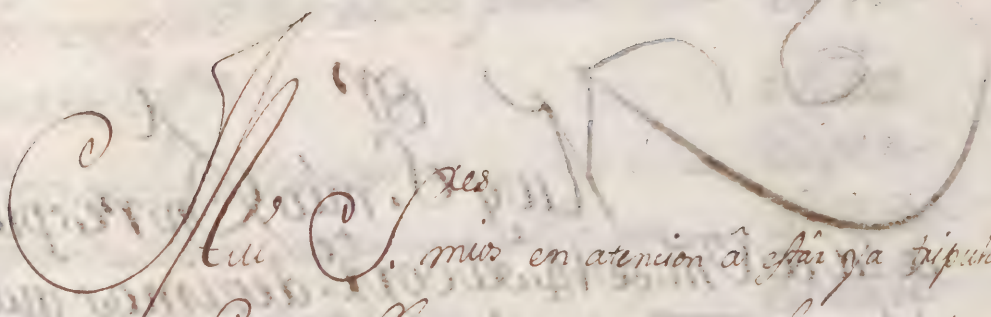 Mui S.res mios en atencion â estâr ya tripula